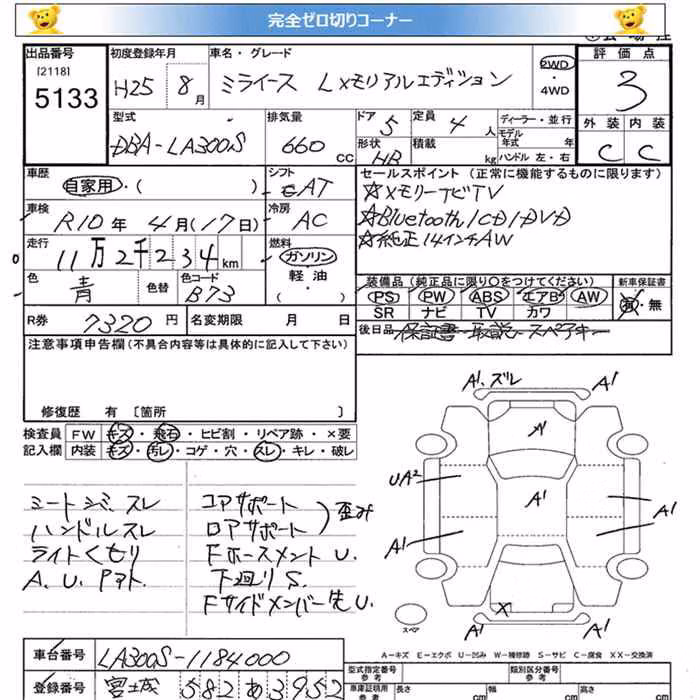 完全ゼロ切りコーナー
出品番号
[2118]
5133
初度登録年月
H25 8月
車名・グレード
ミライース Lメモリアルエディション
2WD
・
4WD
評価点
3
型式
DBA-LA300S
排気量
660 CC
ドア 5
形状 HB
定員 4 人
積載 kg
ディーラー・並行
モデル年式 年
ハンドル 左・右
外装 内装
C C
車歴
自家用・( )
シフト
AT
セールスポイント(正常に機能するものに限ります)
☆メモリーナビTV
☆Bluetooth/CD/DVD
☆純正14インチAW
車検
R10年4月(17日)
冷房
AC
走行
11万2千234km
燃料
ガソリン
軽油
・( )
色
青
色替
色コード
B73
装備品(純正品に限り○をつけてください)
PS PW ABS エアB AW
SR ナビ TV カワ
新車保証書
有・無
R券 7320円
名変期限 月 日
後日品 保証書・取説・スペアキー
注意事項申告欄(不具合内容等は具体的に記入して下さい)
修復歴 有 〔箇所 〕
検査員
記入欄
FW キズ・飛石・ヒビ割・リペア跡・×要
内装 キズ・汚レ・コゲ・穴・スレ・キレ・破レ
シートシミ、スレ
ハンドルスレ
ライトくもり
A、U、Pアト、
コアサポート
ロアサポート
歪み
Fホースメント U.
下廻り S.
Fサイドメンバー先U.
A1、ズレ
A1
A
UA2
A1
A1
A1
A1
X
A1
スペア
A-キズ E-エクボ U-凹み W-補修跡 S-サビ C-腐食 XX-交換済
車台番号 LA300S-1184000
登録番号 宮城 582 あ 3952
型式指定番号
参考
類別区分番号
参考
車庫証明用
参考
長さ cm
幅 cm
高さ cm